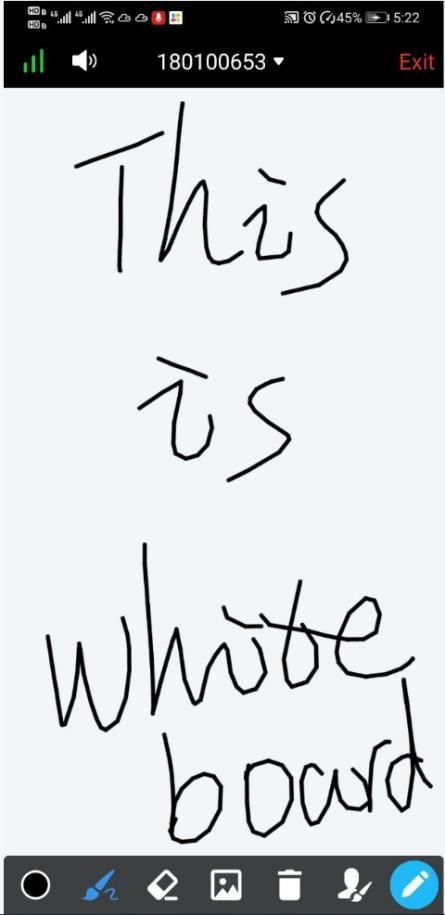 HD HD 4G 4G 45% 5:22
180100653 Exit
This
is
white
board